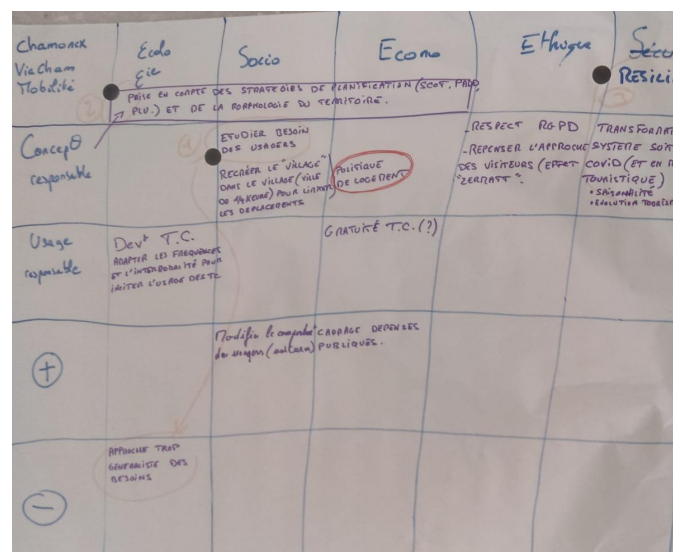 Chamonix
Via Cham
Mobilité
Ecolo
Gie
Socio
Econo
Ethique
Sécu
RESILI
PRISE EN COMPTE DES STRATEGIES DE PLANIFICATION (SCOT, PADD,
PLU.) ET DE LA MORPHOLOGIE DU TERRITOIRE.
Concept°
responsable
ETUDIER BESOIN
DES USAGERS
RECRÉER LE "VILLAGE"
DANS LE VILLAGE (VILLE
DU 1/4 HEURE) POUR LIMITER
LES DEPLACEMENTS
POLITIQUE
DE LOGEMENT
-RESPECT RGPD
-REPENSER L'APPROCHE
DES VISITEURS (EFFET
"ZERMATT".
TRANSFORMAT
SYSTEME SOIT
COVID (ET EN M
TOURISTIQUE)
• SAISONALITÉ
• EVOLUTION TOURISM
Usage
responsable
Devt T.C.
ADAPTER LES FREQUENCES
ET L'INTERMODALITÉ POUR
LIMITER L'USAGE DES TC
GRATUITÉ T.C. (?)
+
Modifier le comportt
des usagers (culture)
CADRAGE DEPENSES
PUBLIQUES.
-
APPROCHE TROP
GENERALISTE DES
BESOINS